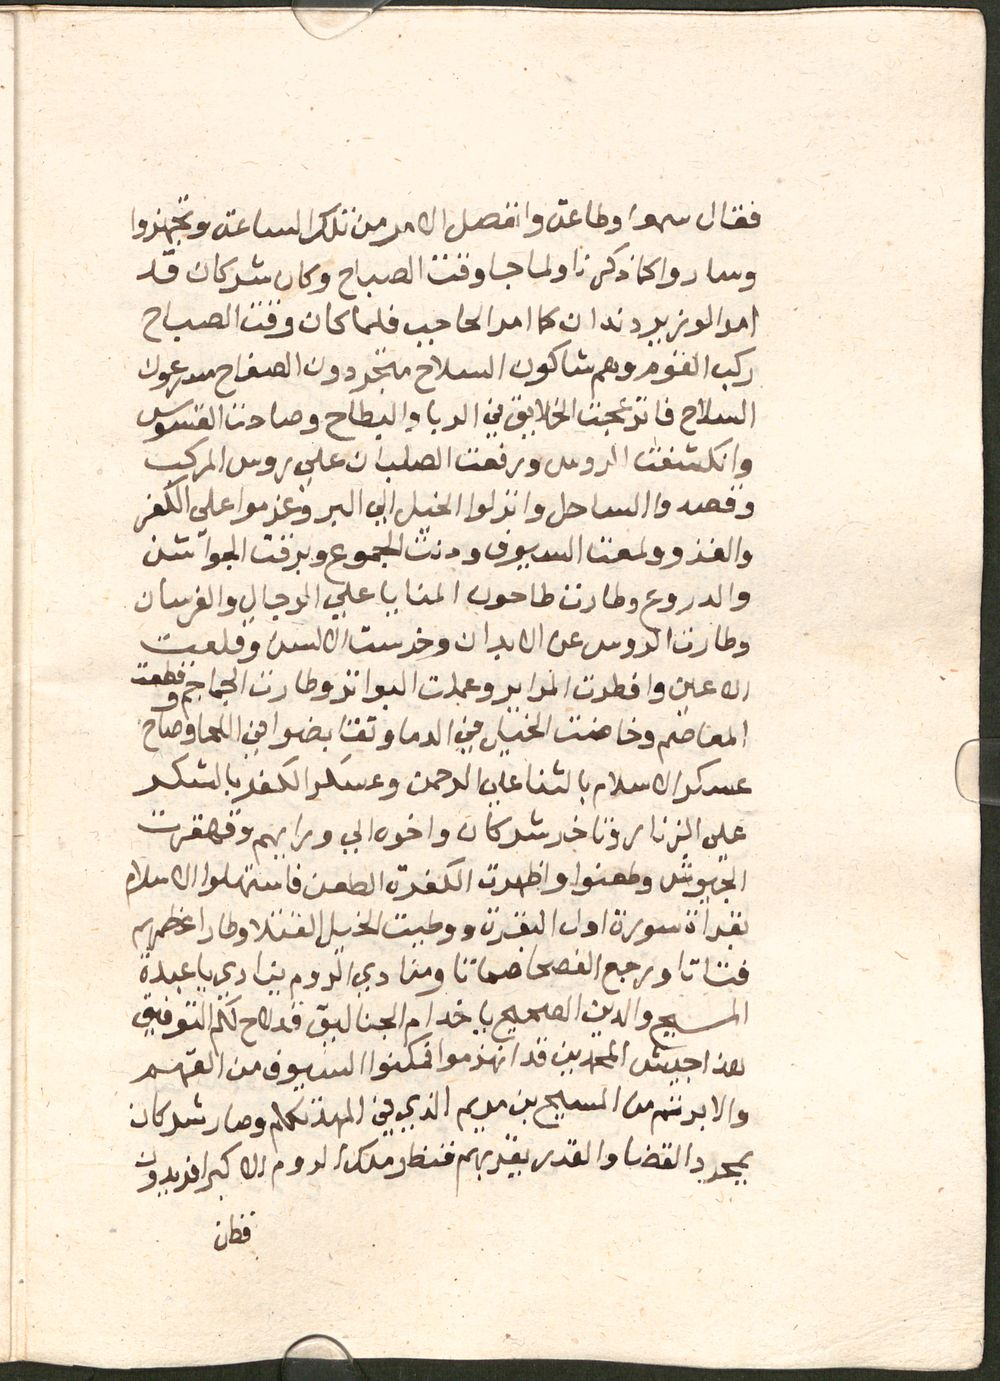 فقال سمعا وطاعة وانفصل الامر من تلك الساعة وتجهزوا
وساروا كما ذكرنا ولما جا وقت الصباح وكان شركان قد
امر الوزير دندان كما امر الحاجب فلما كان وقت الصباح
ركب القوم وهم شاكون السلاح متجردون الصفاح مدرعون
السلاح فانزعجت الخلايق في الربا والبطاح وصاحت القسوس
وانكشفت الروس ورفعت الصلبان علي روس المركب
وقصدوا الساحل وانزلوا الخيل الي البر وعزموا علي الكر
والغزو ولمعت السيوف ودنت الجموع وبرقت الجواشن
والدروع وطارت طاحون المنايا علي الرجال والفرسان
وطارت الروس عن الابدان وخرست الالسن وقلعت
الاعين وافطرت المراير وعملت البواتر وطارت الجماجم وقطعت
المعاصم وخاضت الخيل في الدما وتقابضوا في اللحا وصاح
عسكر الاسلام بالثنا علي الرحمن وعسكر الكفر بالشكر
علي الزنار وتاخر شركان واخوه الي ورايهم وقهقرت
الجيوش وطعنوا واظهرت الكفرة الطعن فاستهلوا الاسلام
بقراة سورة اول البقرة ووطيت الخيل القتلا وطار اعظمهم
فتاتا ورجع الفصحا ضماتا ومنادي الروم ينادي يا عبدة
المسيح والدين الصحيح يا خدام الجثاليق قد لاح لكم التوفيق
هذا جيش المحمديين قد انهزموا فمكنوا السيوف من القهم
والا برئتم من المسيح بن مريم الذي في المهد تكلم وصار شركان
بمجرد القضا والقدر يقربهم فنظر ملك الروم الاكبر افريدون
فظن